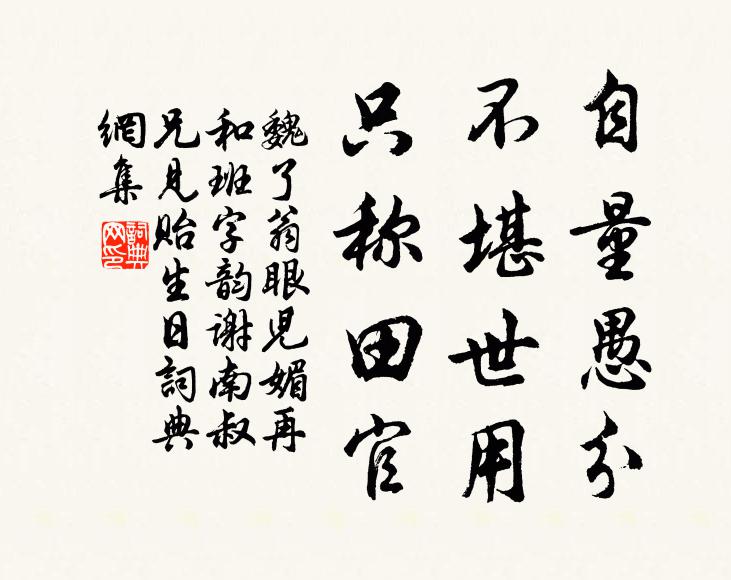 自量愚分
不堪世用
只称田官
魏了翁眼児媚再
和班字韵谢南叔
兄見贻生日詞典
網集
詞典
网印